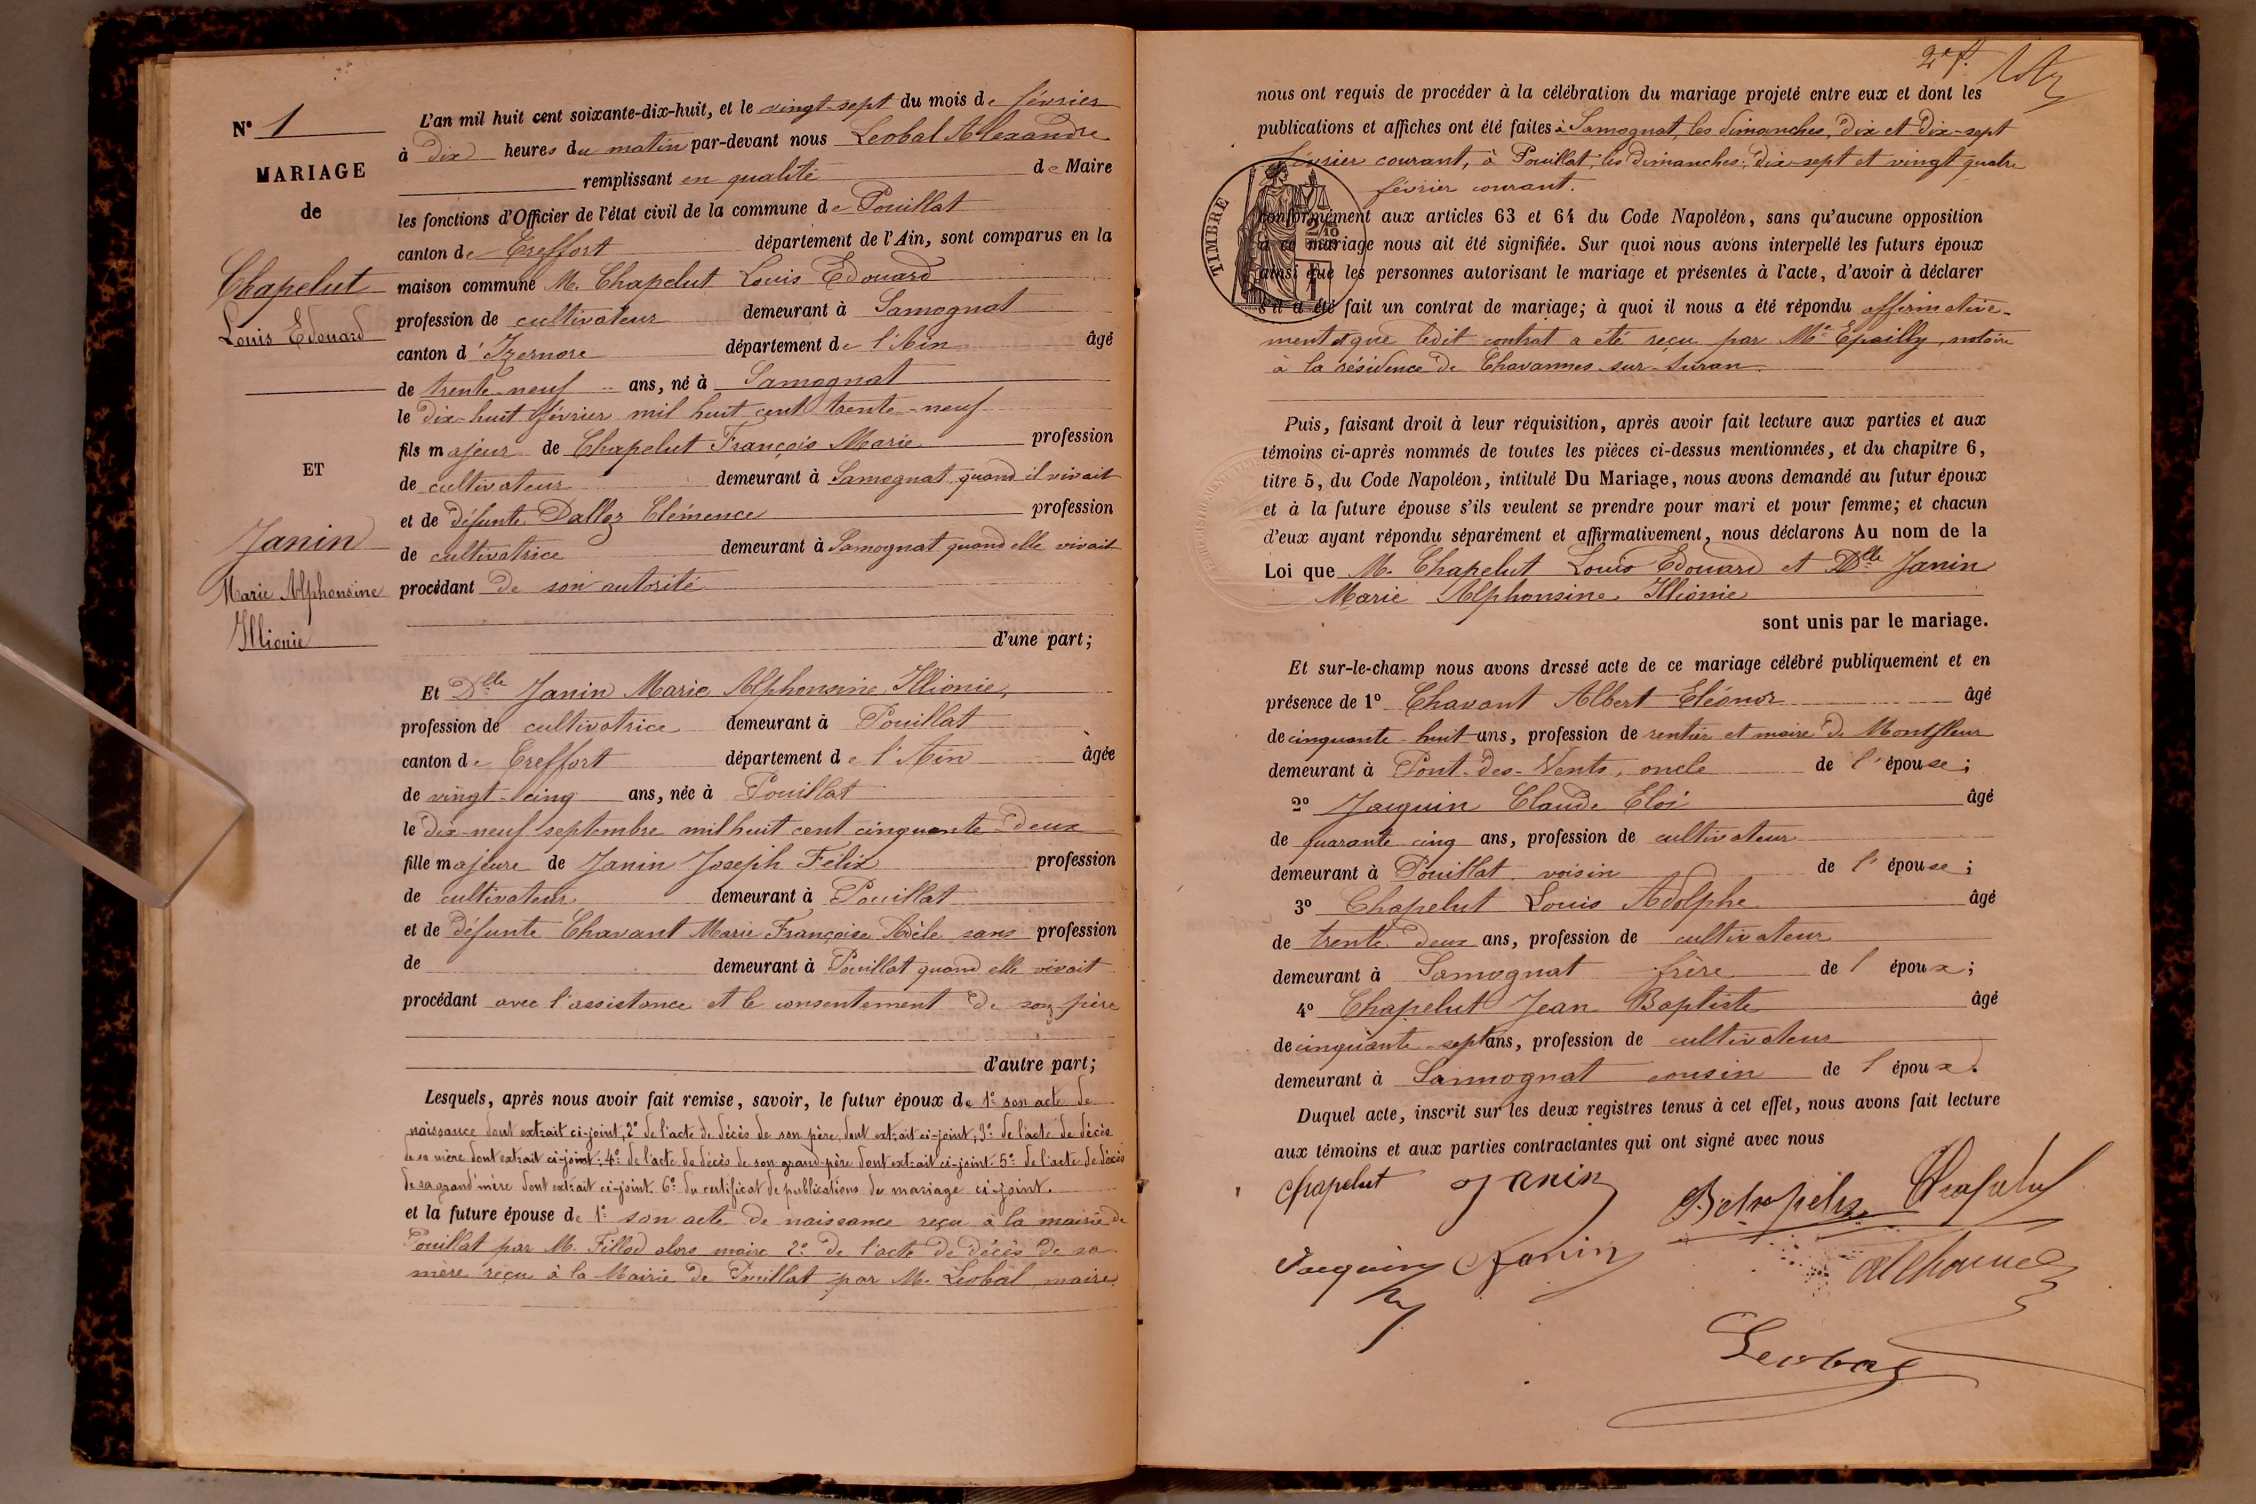 N° 1
MARIAGE
de
Chapelut
Louis Edouard
ET
Janin
Marie Alphonsine
Illionie
L'an mil huit cent soixante-dix-huit, et le vingt-sept du mois de février
à dix heures du matin par-devant nous Leobal Alexandre
remplissant en qualité de Maire
les fonctions d'Officier de l'état civil de la commune de Pouillat
canton de Treffort département de l'Ain, sont comparus en la
maison commune M. Chapelut Louis Edouard
profession de cultivateur demeurant à Samognat
canton d'Izernore département de l'Ain âgé
de trente-neuf ans, né à Samognat
le dix-huit février mil huit cent trente-neuf
fils majeur de Chapelut François Marie profession
de cultivateur demeurant à Samognat quand il vivait
et de défunte Dalloz Clémence profession
de cultivatrice demeurant à Samognat quand elle vivait
procédant de son autorité
d'une part;
Et Dlle Janin Marie Alphonsine Illionie,
profession de cultivatrice demeurant à Pouillat
canton de Treffort département de l'Ain âgée
de vingt-cinq ans, née à Pouillat
le dix-neuf septembre mil huit cent cinquante-deux
fille majeure de Janin Joseph Félix profession
de cultivateur demeurant à Pouillat
et de défunte Chavant Marie Françoise Adèle sans profession
de demeurant à Pouillat quand elle vivait
procédant avec l'assistance et le consentement de son père
d'autre part;
Lesquels, après nous avoir fait remise, savoir, le futur époux de 1° son acte de
naissance dont extrait ci-joint, 2° de l'acte de décès de son père, dont extrait ci-joint, 3° de l'acte de décès
de sa mère dont extrait ci-joint: 4° de l'acte de décès de son grand-père dont extrait ci-joint 5° de l'acte de décès
de sa grand'mère dont extrait ci-joint. 6° du certificat de publications du mariage ci-joint.
et la future épouse de 1° son acte de naissance reçu à la mairie de
Pouillat par M. Fillod alors maire 2° de l'acte de décès de sa
mère reçu à la Mairie de Pouillat par M. Leobal, maire.
2e f.
nous ont requis de procéder à la célébration du mariage projeté entre eux et dont les
publications et affiches ont été faites à Samognat, les dimanches, dix et dix-sept
février courant, à Pouillat, les dimanches, dix-sept et vingt quatre
février courant.
TIMBRE
conformément aux articles 63 et 64 du Code Napoléon, sans qu'aucune opposition
à ce mariage nous ait été signifiée. Sur quoi nous avons interpellé les futurs époux
ainsi que les personnes autorisant le mariage et présentes à l'acte, d'avoir à déclarer
s'il a été fait un contrat de mariage; à quoi il nous a été répondu affirmative-
ment et que ledit contrat a été reçu par Me Epailly, notaire
à la résidence de Chavannes-sur-Suran.
Puis, faisant droit à leur réquisition, après avoir fait lecture aux parties et aux
témoins ci-après nommés de toutes les pièces ci-dessus mentionnées, et du chapitre 6,
titre 5, du Code Napoléon, intitulé Du Mariage, nous avons demandé au futur époux
et à la future épouse s'ils veulent se prendre pour mari et pour femme; et chacun
d'eux ayant répondu séparément et affirmativement, nous déclarons Au nom de la
Loi que M. Chapelut Louis Edouard et Dlle Janin
Marie Alphonsine Illionie
sont unis par le mariage.
Et sur-le-champ nous avons dressé acte de ce mariage célébré publiquement et en
présence de 1° Chavant Albert Eléonor âgé
de cinquante-huit ans, profession de rentier et maire de Montfleur
demeurant à Pont-des-Vents, oncle de l'épouse;
2° Jacquin Claude Eloi âgé
de quarante cinq ans, profession de cultivateur
demeurant à Pouillat voisin de l'épouse;
3° Chapelut Louis Adolphe âgé
de trente deux ans, profession de cultivateur
demeurant à Samognat frère de l'époux;
4° Chapelut Jean Baptiste âgé
de cinquante-sept ans, profession de cultivateur
demeurant à Samognat cousin de l'époux.
Duquel acte, inscrit sur les deux registres tenus à cet effet, nous avons fait lecture
aux témoins et aux parties contractantes qui ont signé avec nous
Chapelut Janin Chapelut
Jacquin Janin
Leobal